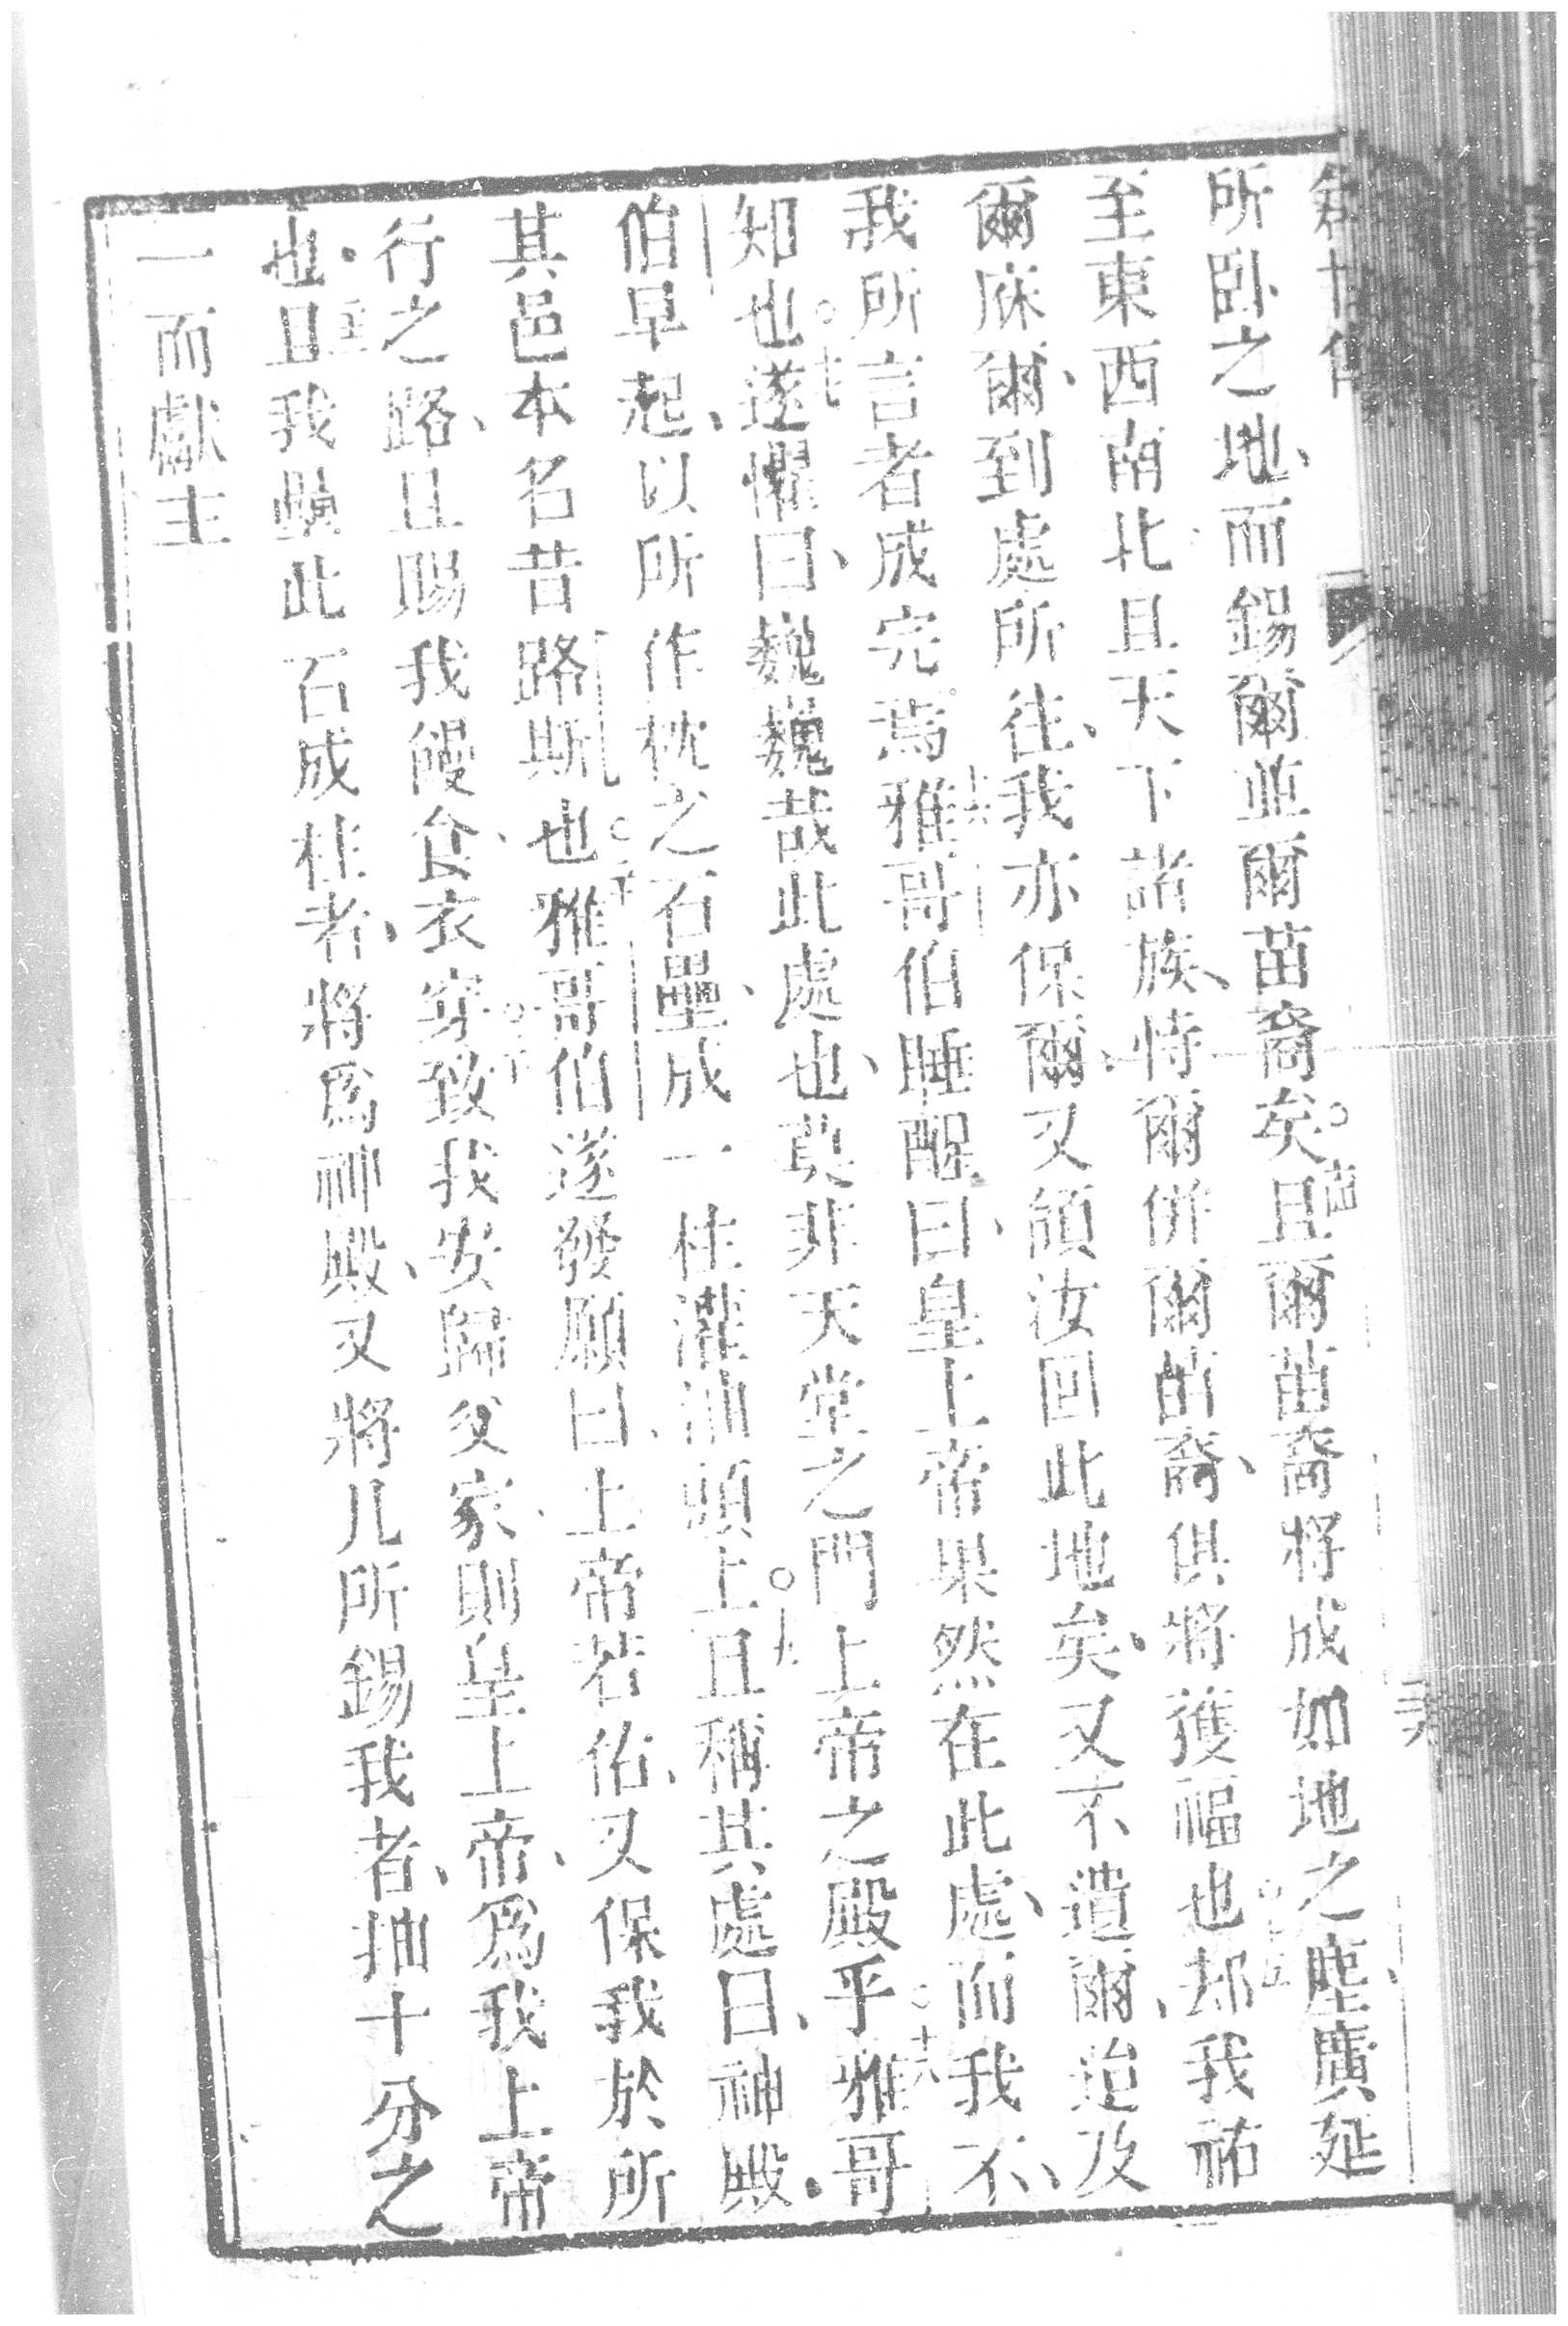 所卧之地、而錫爾並爾苗裔矣。且爾苗裔將成如地之塵、廣延
至東西南北且天下諸族、恃爾併爾苗裔、俱將獲福也。却我祐
爾庥爾、到處所往、我亦保爾、又領汝回此地矣、又不遺爾、迨及
我所言者成完焉。雅哥伯睡醒、曰皇上帝果然在此處、而我不、
知也。遂懼曰、巍巍哉此處也、莫非天堂之門上帝之殿乎。雅哥
伯早起、以所作枕之石壘、成一柱灌油頭上。且稱其處曰、神殿、
其邑本名昔路斯也。雅哥伯遂發願曰、上帝若佑、又保我於所
行之路、且賜我饅食、衣穿。致我安歸父家、則皇上帝、爲我上帝
也、且我與此石成柱者、將爲神殿、又將凡所錫我者、抽十分之
一而獻主